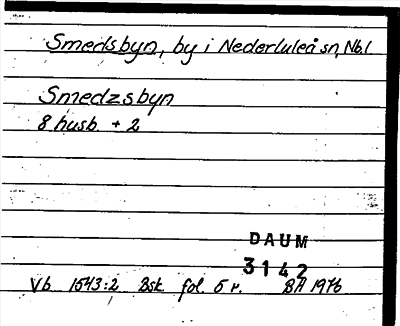 Smedsbyn, by i Nederluleå sn, Nb.l.
Smedzsbyn
8 husb. + 2
DAUM
3142
Vb 1543:2 Bsk fol. 5 r. BA 1976